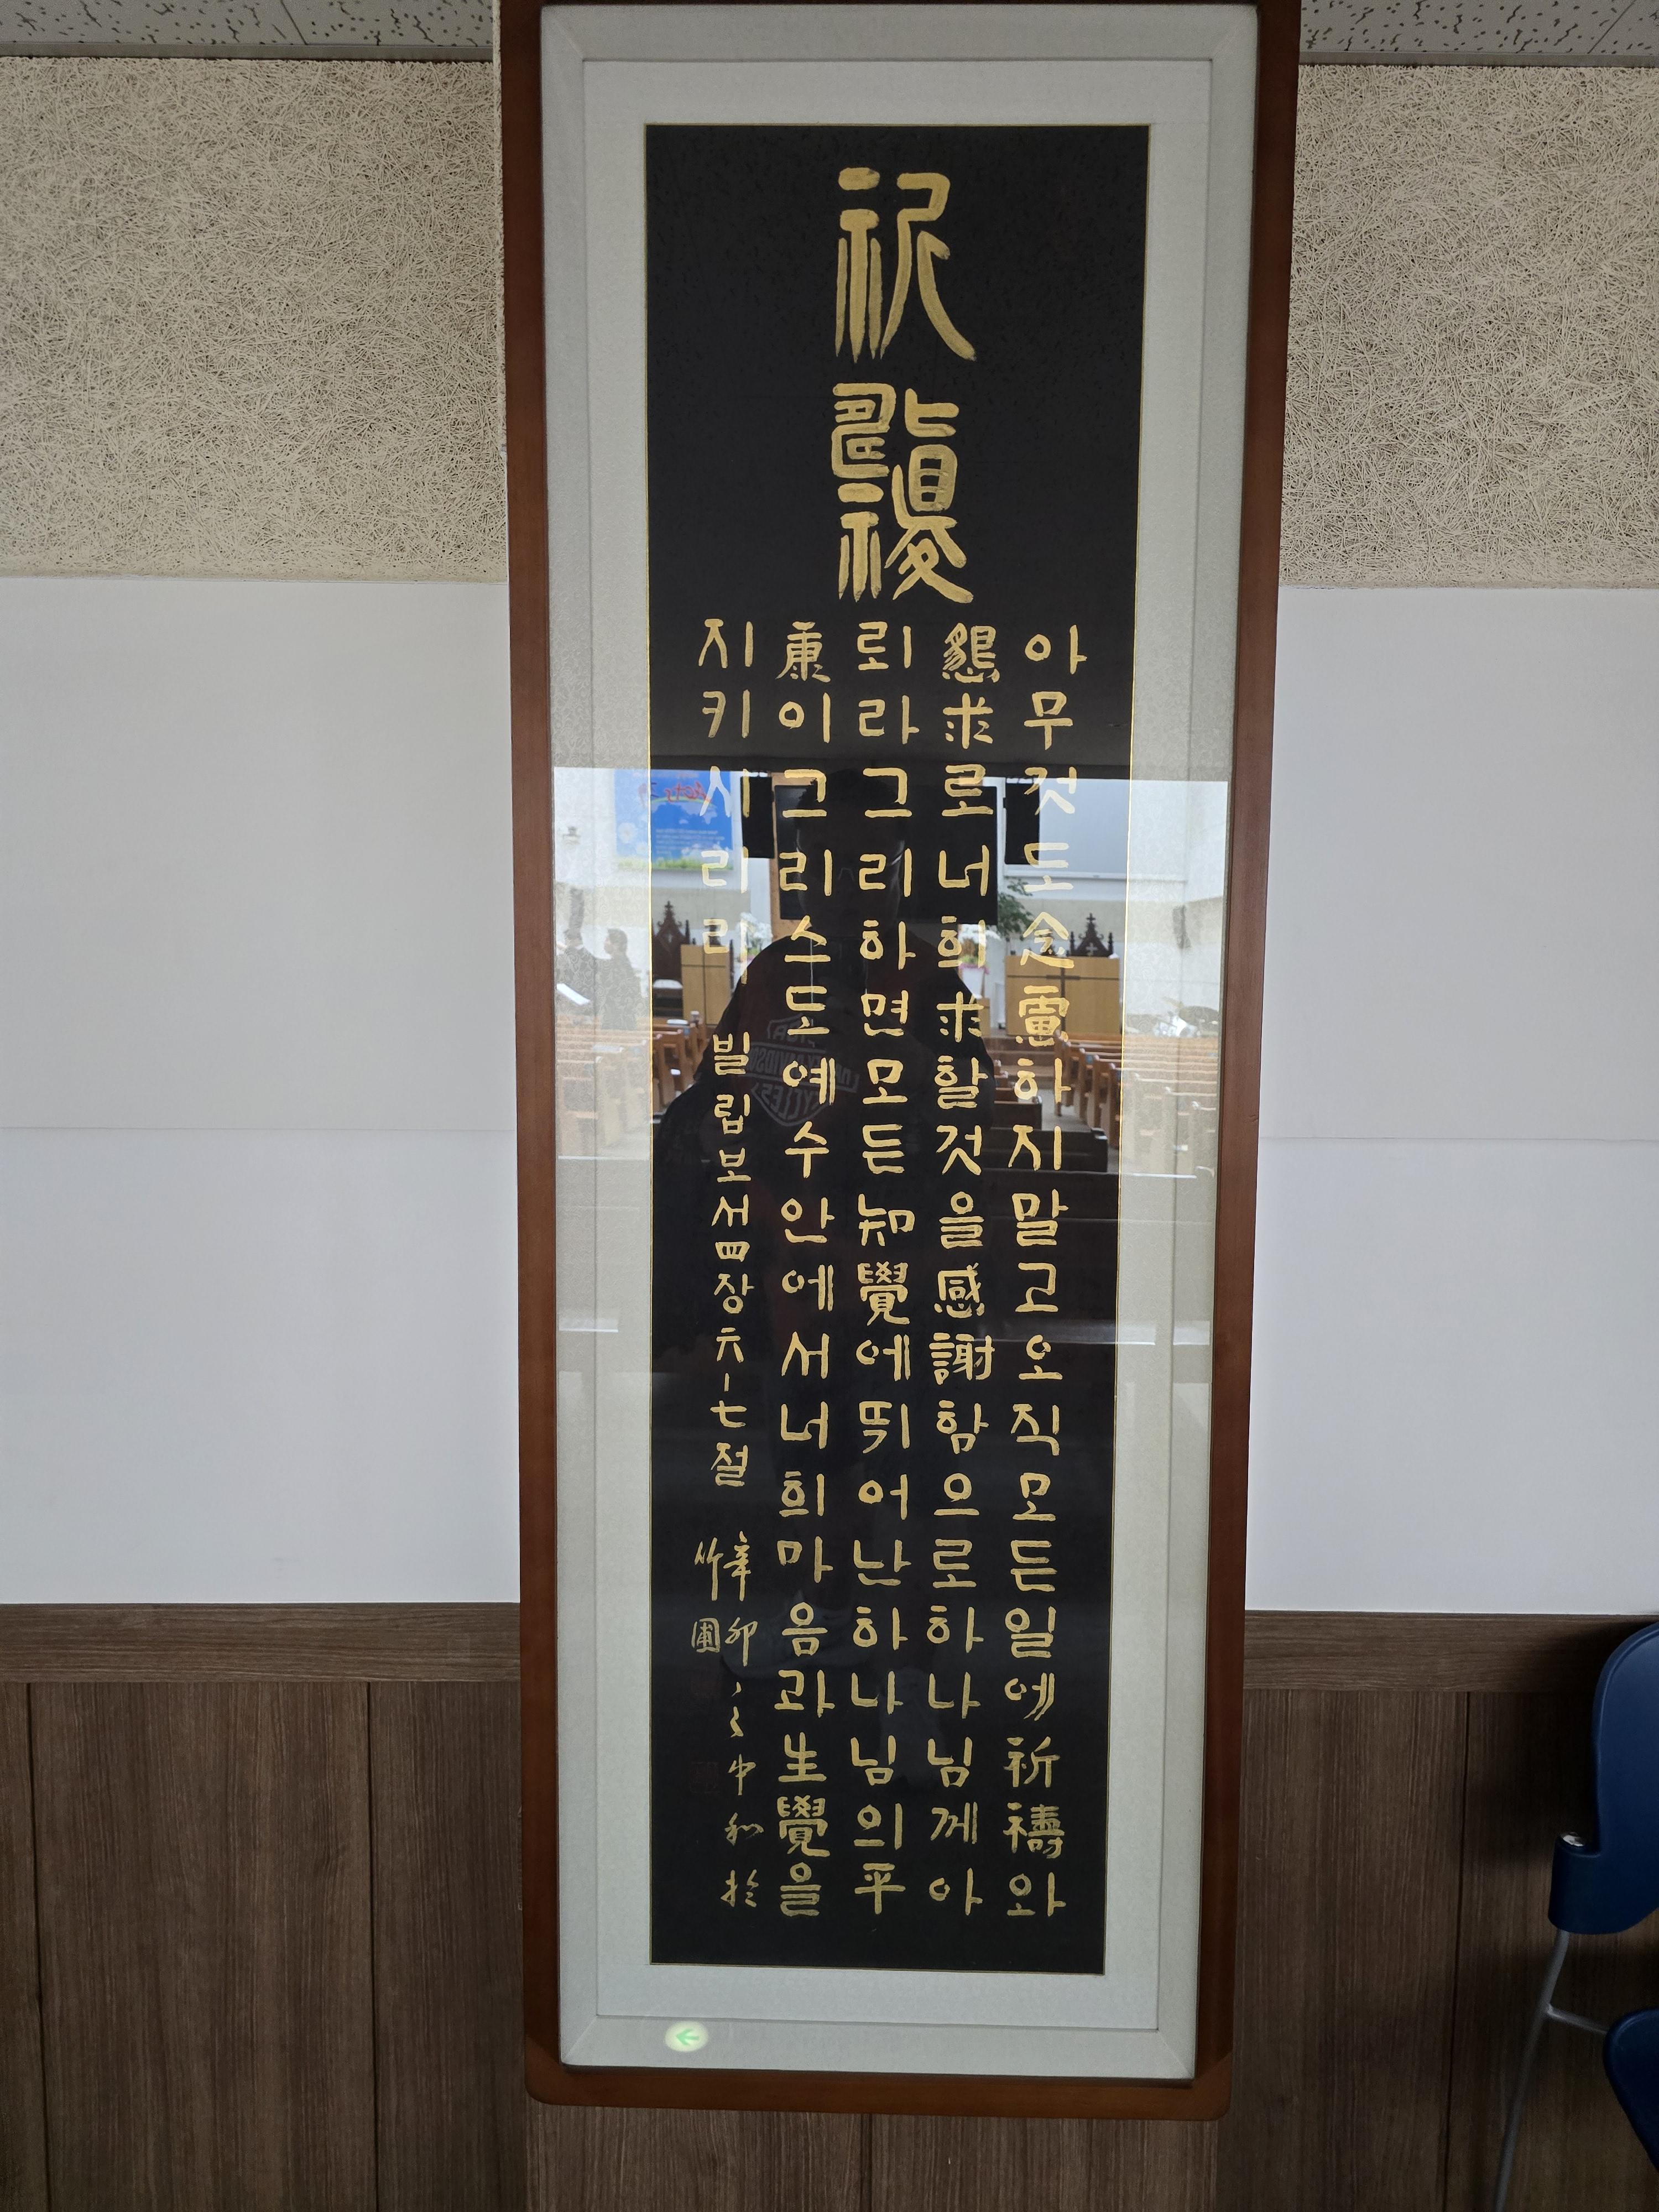 祝
福
아무것도念慮하지말고오직모든일에祈禱와
懇求로너희求할것을感謝함으로하나님께아
뢰라그리하면모든知覺에뛰어난하나님의平
康이그리스도예수안에서너희마음과生覺을
지키시리라
빌립보서四장六-七절
辛卯 中和於
竹圃